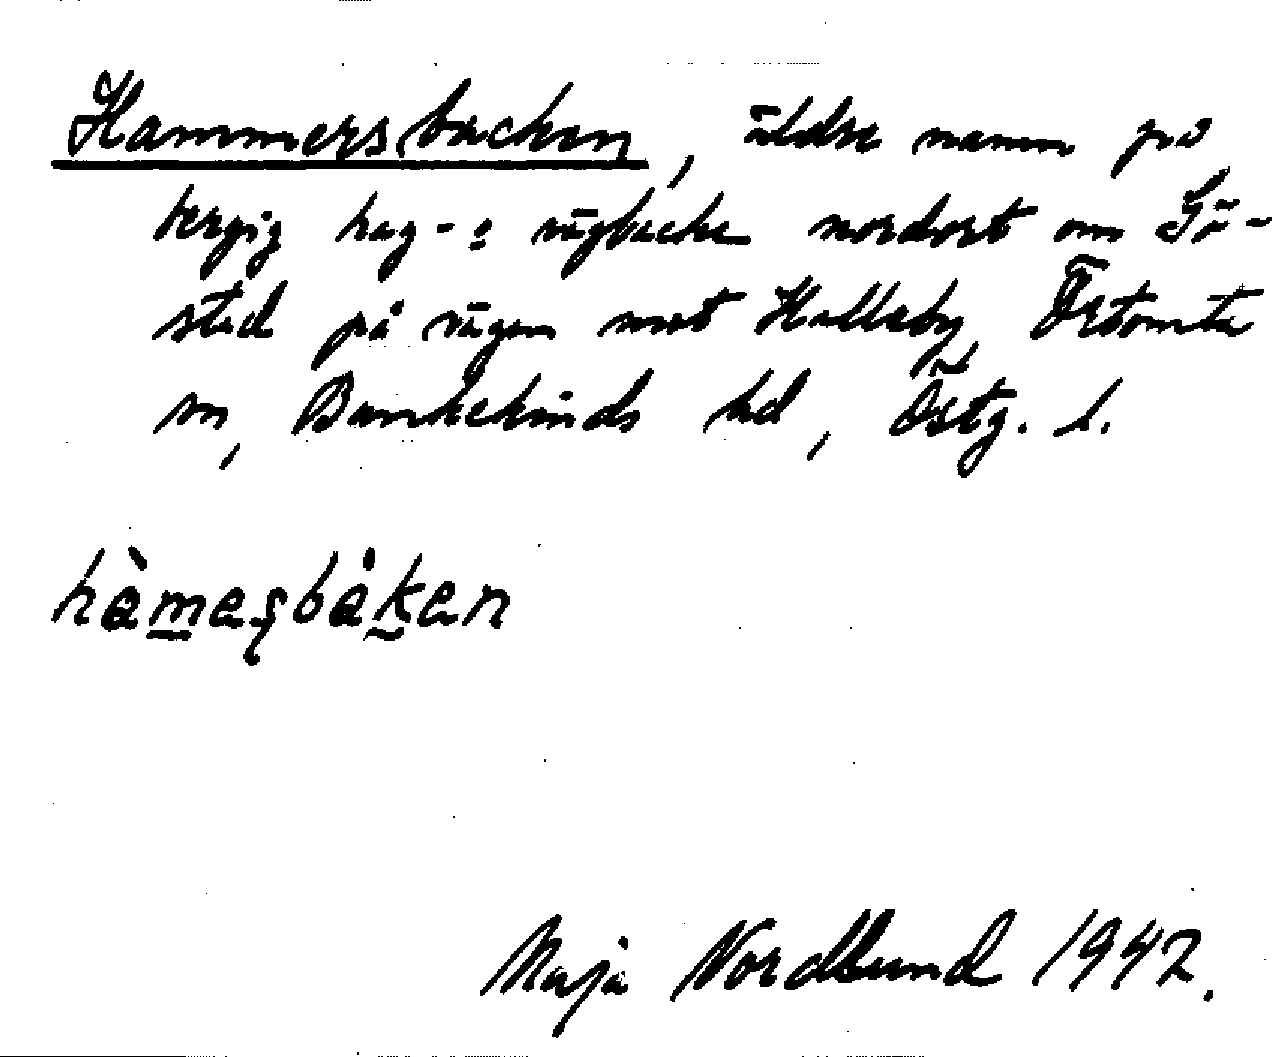 Hammersbacken, äldre namn på
bergig hag- o vägbacke nordost om Gö-
stad på vägen mot Halleby, Östomta
sn, Bankekinds hd, Östg. l.
hàmaʂbàkan
Maja Nordlund 1947.